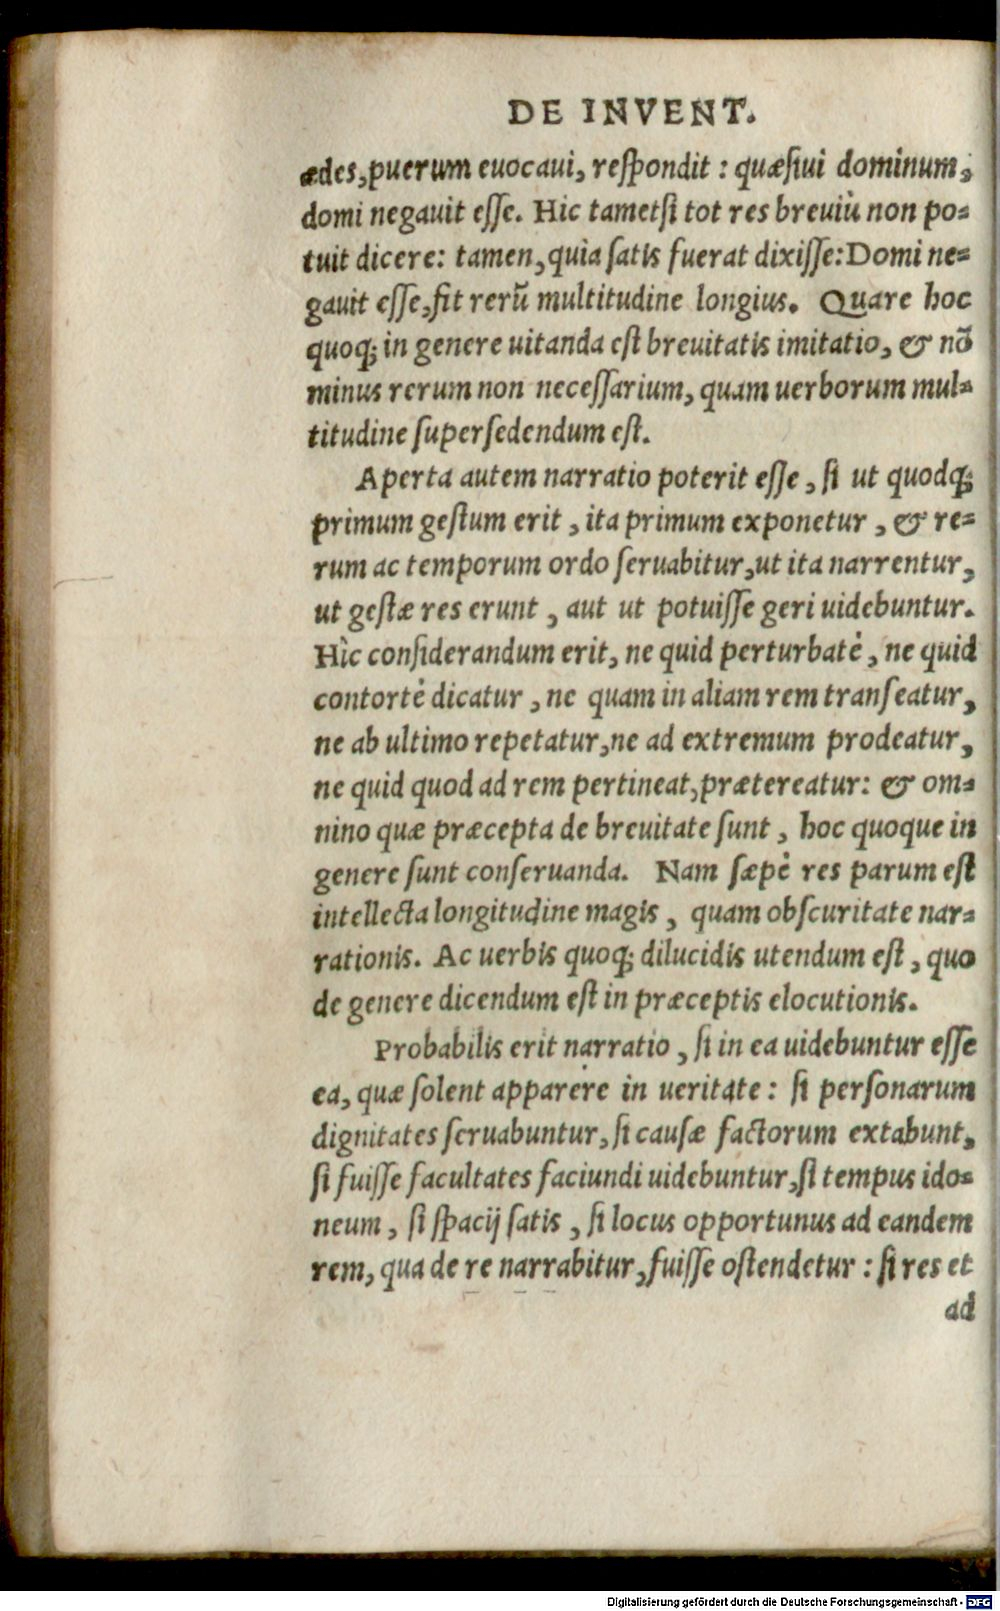 DE INVENT.
ædes, puerum euocaui, respondit: quæsiui dominum,
domi negauit esse. Hic tametsi tot res breuiù non po-
tuit dicere: tamen, quia satis fuerat dixisse: Domi ne-
gauit esse, fit rerũ multitudine longius. Quare hoc
quoq; in genere uitanda est breuitatis imitatio, & nõ
minus rerum non necessarium, quam uerborum mul-
titudine supersedendum est.
Aperta autem narratio poterit esse, si ut quodq;
primum gestum erit, ita primum exponetur, & re-
rum ac temporum ordo seruabitur, ut ita narrentur,
ut gestæ res erunt, aut ut potuisse geri uidebuntur.
Hìc considerandum erit, ne quid perturbatè, ne quid
contortè dicatur, ne quam in aliam rem transeatur,
ne ab ultimo repetatur, ne ad extremum prodeatur,
ne quid quod ad rem pertineat, prætereatur: & om-
nino quæ præcepta de breuitate sunt, hoc quoque in
genere sunt conseruanda. Nam sæpè res parum est
intellecta longitudine magis, quam obscuritate nar-
rationis. Ac uerbis quoq; dilucidis utendum est, quo
de genere dicendum est in præceptis elocutionis.
Probabilis erit narratio, si in ea uidebuntur esse
ea, quæ solent apparere in ueritate: si personarum
dignitates seruabuntur, si causæ factorum extabunt,
si fuisse facultates faciundi uidebuntur, si tempus ido-
neum, si spacij satis, si locus opportunus ad eandem
rem, qua de re narrabitur, fuisse ostendetur: si res et
ad
Digitalisierung gefördert durch die Deutsche Forschungsgemeinschaft - DFG